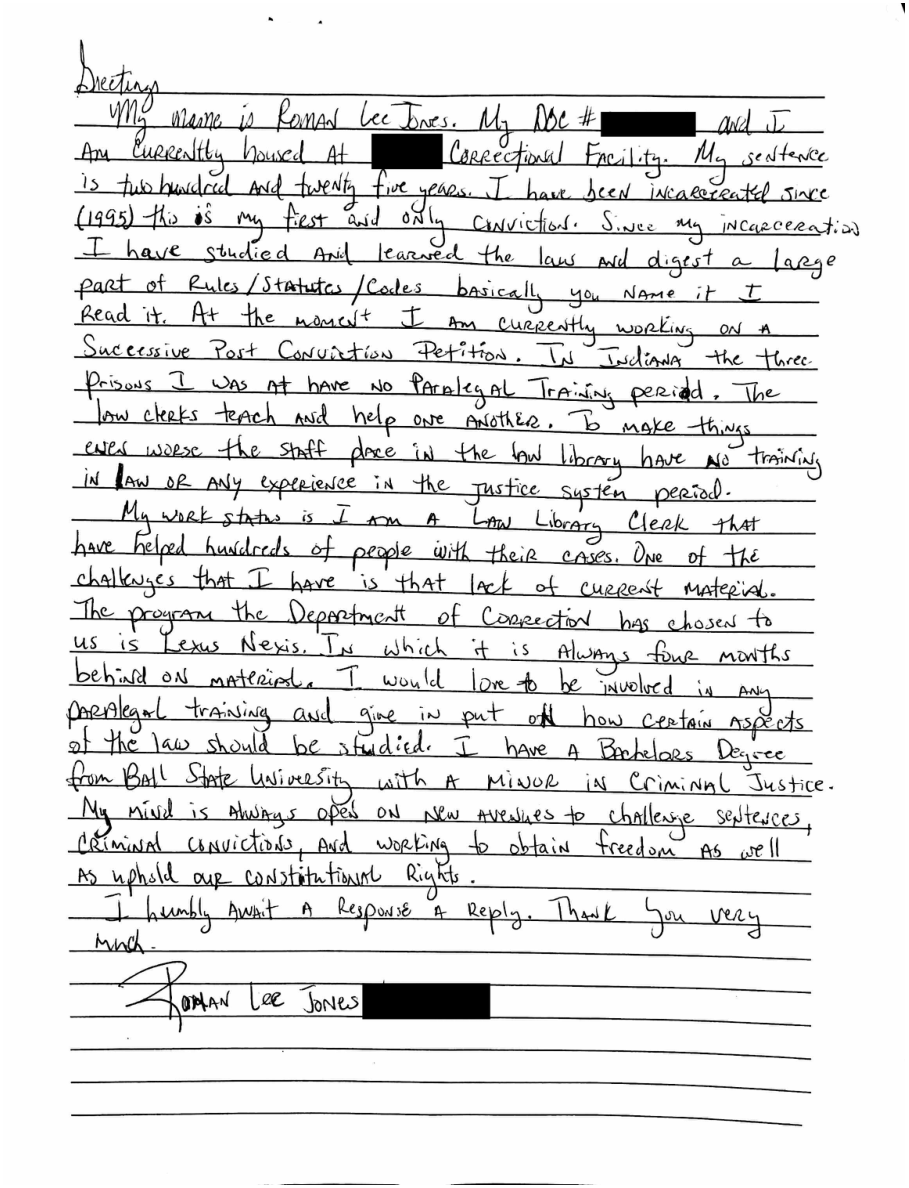 Greetings
My name is Roman Lee Jones. My DOC # and I
Am Currently housed At Correctional Facility. My sentence
is two hundred And twenty five years. I have been incarcerated since
(1995) this is my first and only conviction. Since my incarceration
I have studied And learned the law and digest a large
part of Rules/Statutes/Codes basically you Name it I
Read it. At the moment I Am currently working on A
Successive Post Conviction Petition. In Indiana the three
prisons I was at have no Paralegal Training period. The
law clerks teach and help one another. To make things
even worse the staff place in the law library have no training
in law or any experience in the justice system period.
My work status is I am A Law Library Clerk that
have helped hundreds of people with their cases. One of the
challenges that I have is that lack of current material.
The program the Department of Correction has chosen to
us is Lexus Nexis. In which it is Always four months
behind on material. I would love to be involved in any
paralegal training and give in put on how certain aspects
of the law should be studied. I have A Bachelors Degree
from Ball State University with A minor in Criminal Justice.
My mind is always open on new avenues to challenge sentences,
criminal convictions, and working to obtain freedom as well
as uphold our constitutional Rights.
I humbly await A Response A Reply. Thank you very
much.
Roman Lee Jones